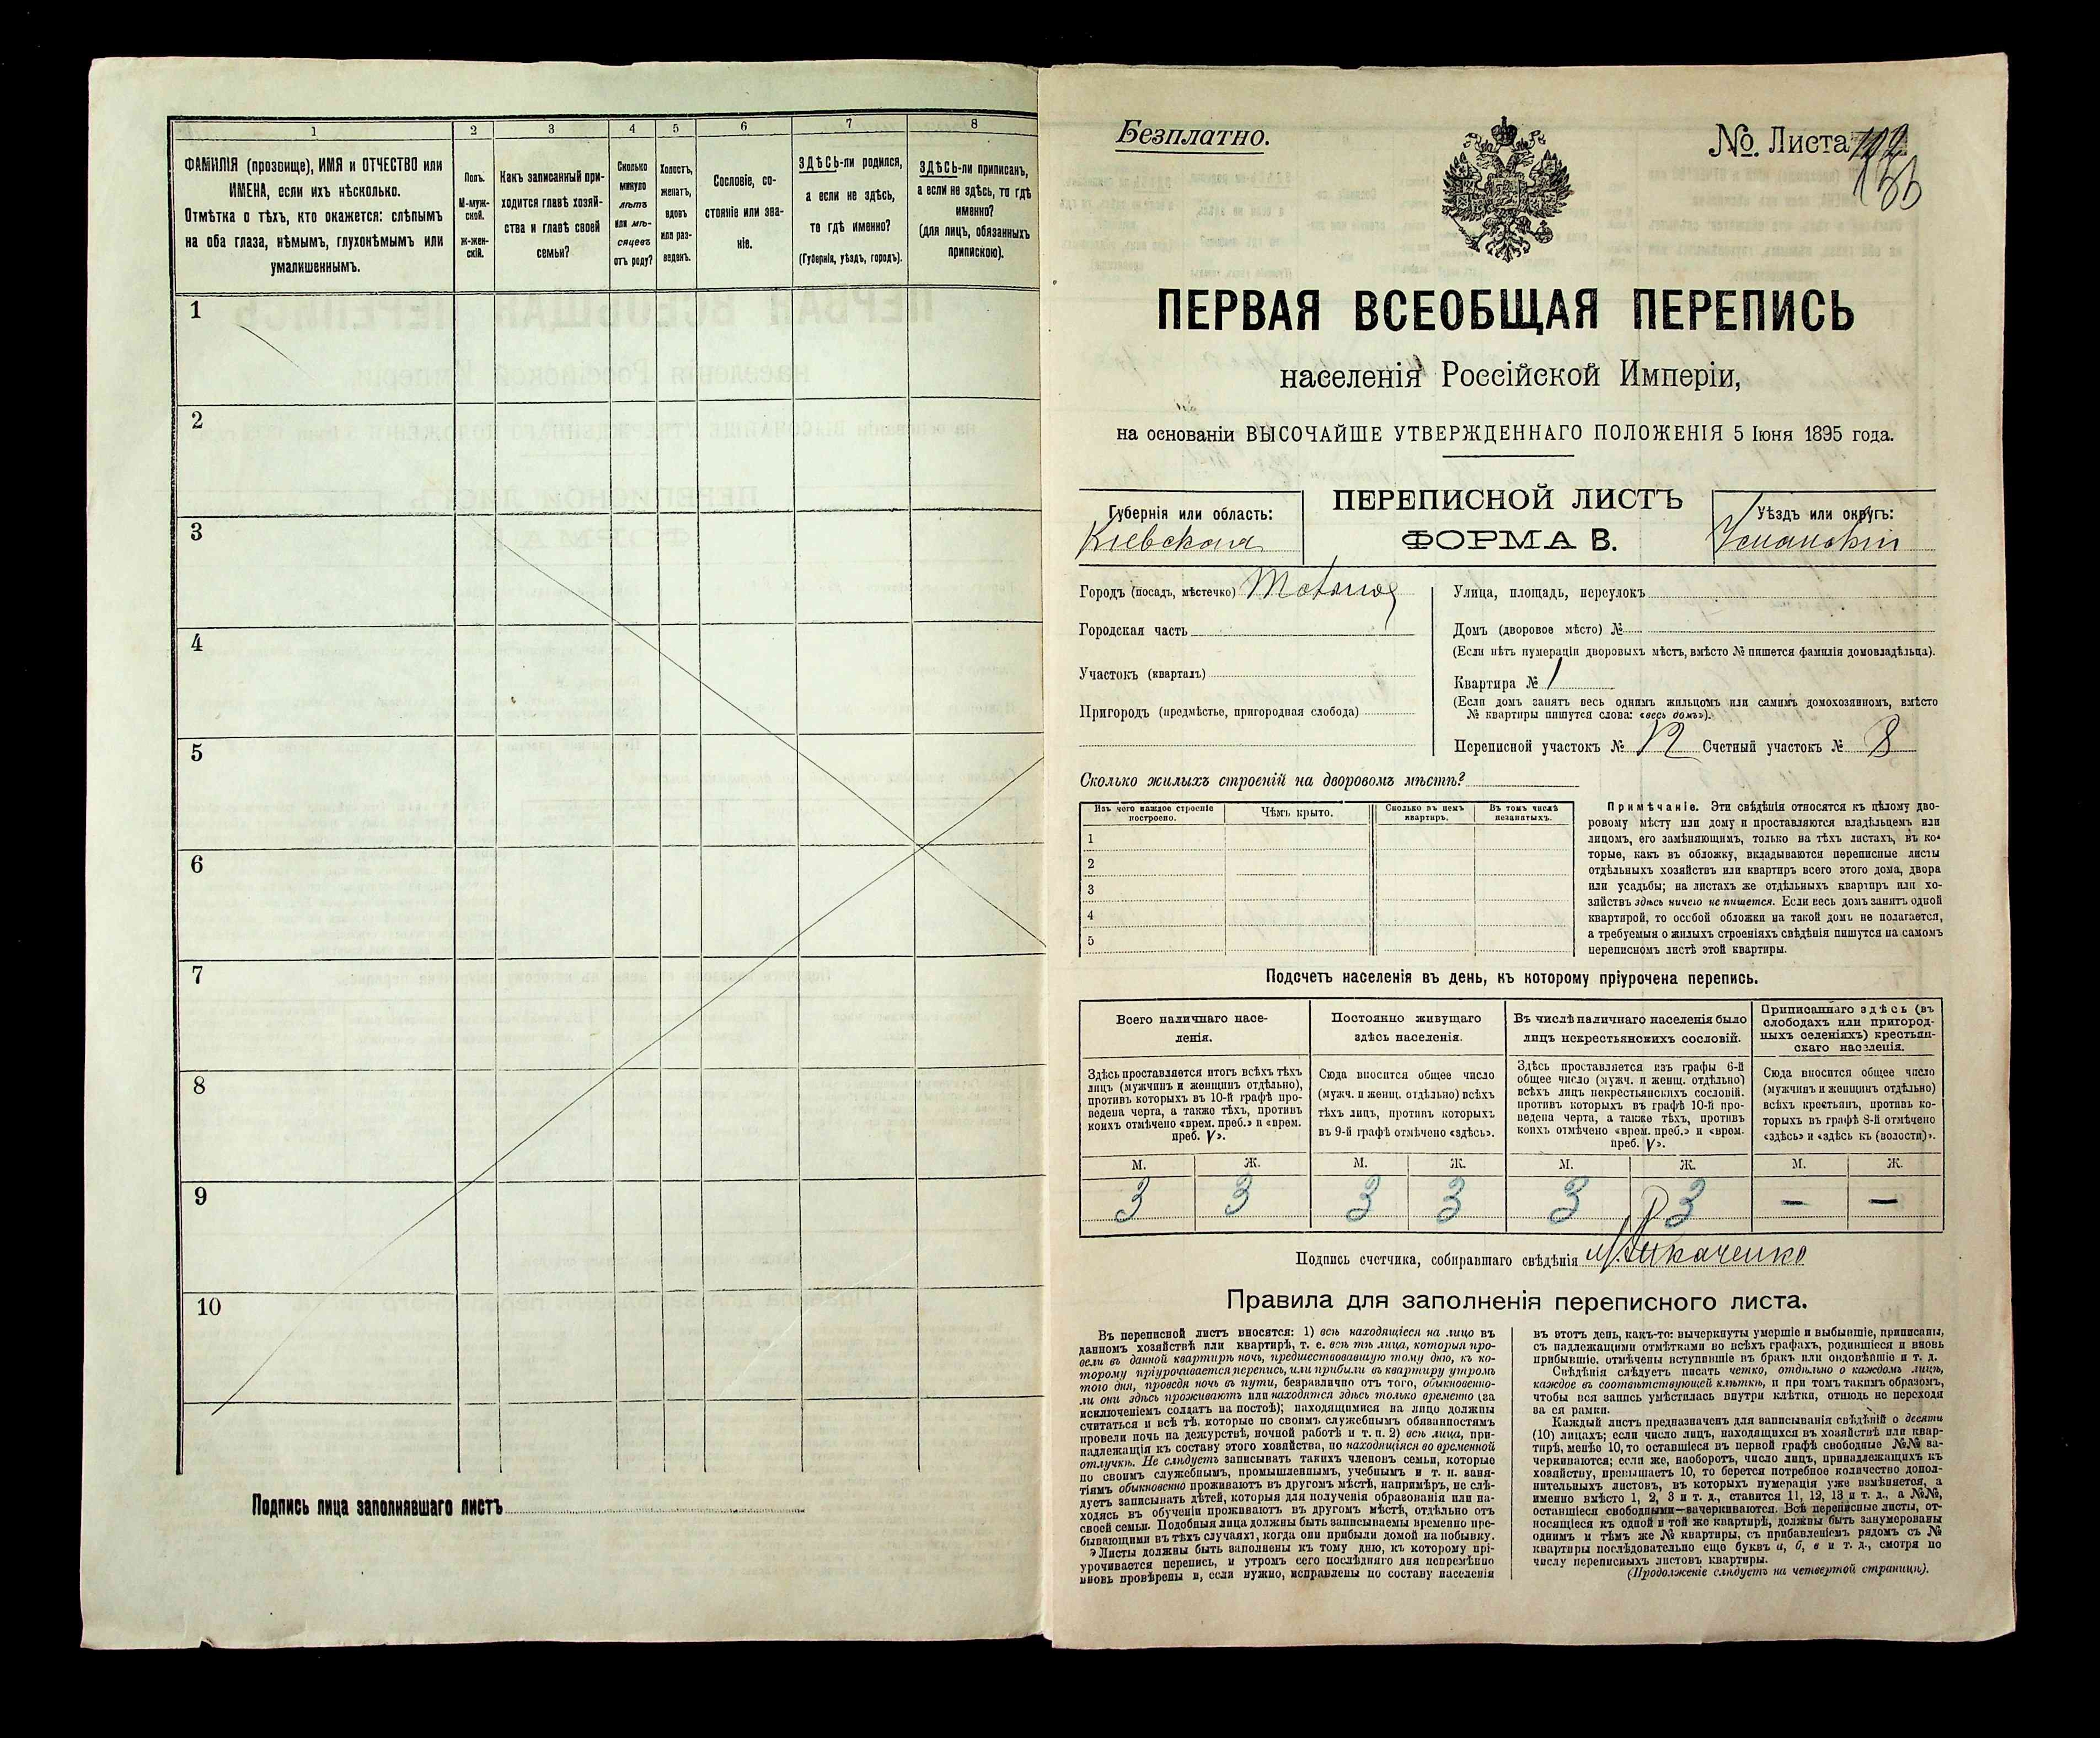 1 2 3 4 5 6 7 8
ФАМИЛІЯ (прозвище), ИМЯ и ОТЧЕСТВО или
ИМЕНА, если ихъ нѣсколько.
Отмѣтка о тѣхъ, кто окажется: слѣпымъ
на оба глаза, нѣмымъ, глухонѣмымъ или
умалишеннымъ.
Полъ.
М-муж-
ской.
ж-жен-
скій.
Какъ записанный при-
ходится главѣ хозяй-
ства и главѣ своей
семьи?
Сколько
минуло
лѣтъ
или мѣ-
сяцевъ
отъ роду?
Холостъ,
женатъ,
вдовъ
или раз-
веденъ.
Сословіе, со-
стояніе или зва-
ніе.
ЗДѢСЬ-ли родился,
а если не здѣсь,
то гдѣ именно?
(Губернія, уѣздъ, городъ).
ЗДѢСЬ-ли приписанъ,
а если не здѣсь, то гдѣ
именно?
(для лицъ, обязанныхъ
припискою).
1
2
3
4
5
6
7
8
9
10
Подпись лица заполнявшаго листъ
Безплатно.
№ Листа
ПЕРВАЯ ВСЕОБЩАЯ ПЕРЕПИСЬ
населенія Россійской Имперіи,
на основаніи ВЫСОЧАЙШЕ УТВЕРЖДЕННАГО ПОЛОЖЕНІЯ 5 Іюня 1895 года.
Губернія или область:
Кіевская
ПЕРЕПИСНОЙ ЛИСТЪ
ФОРМА В.
Уѣздъ или округъ:
Уманскій
Городъ (посадъ, мѣстечко)
Городская часть
Участокъ (кварталъ)
Пригородъ (предмѣстье, пригородная слобода)
Улица, площадь, переулокъ
Домъ (дворовое мѣсто) №
(Если нѣтъ нумераціи дворовыхъ мѣстъ, вмѣсто № пишется фамилія домовладѣльца).
Квартира № 1
(Если домъ занятъ весь однимъ жильцомъ или самимъ домохозяиномъ, вмѣсто
№ квартиры пишутся слова: «весь домъ»).
Переписной участокъ № 12 Счетный участокъ № 8
Сколько жилыхъ строеній на дворовомъ мѣстѣ?
Изъ чего каждое строеніе
построено.
Чѣмъ крыто.
Сколько въ немъ
квартиръ.
Въ томъ числѣ
незанятыхъ.
1
2
3
4
5
Примѣчаніе. Эти свѣдѣнія относятся къ цѣлому дво-
ровому мѣсту или дому и проставляются владѣльцемъ или
лицомъ, его замѣняющимъ, только на тѣхъ листахъ, въ ко-
торые, какъ въ обложку, вкладываются переписные листы
отдѣльныхъ хозяйствъ или квартиръ всего этого дома, двора
или усадьбы; на листахъ же отдѣльныхъ квартиръ или хо-
зяйствъ здѣсь ничего не пишется. Если весь домъ занятъ одной
квартирой, то особой обложки на такой домъ не полагается,
а требуемыя о жилыхъ строеніяхъ свѣдѣнія пишутся на самомъ
переписномъ листѣ этой квартиры.
Подсчетъ населенія въ день, къ которому пріурочена перепись.
Всего наличнаго насе-
ленія.
Постоянно живущаго
здѣсь населенія.
Въ числѣ наличнаго населенія было
лицъ некрестьянскихъ сословій.
Приписаннаго здѣсь (въ
слободахъ или пригород-
ныхъ селеніяхъ) крестьян-
скаго населенія.
Здѣсь проставляется итогъ всѣхъ тѣхъ
лицъ (мужчинъ и женщинъ отдѣльно),
противъ которыхъ въ 10-й графѣ про-
ведена черта, а также тѣхъ, противъ
коихъ отмѣчено «врем. преб.» и «врем.
преб. V».
Сюда вносится общее число
(мужч. и женщ. отдѣльно) всѣхъ
тѣхъ лицъ, противъ которыхъ
въ 9-й графѣ отмѣчено «здѣсь».
Здѣсь проставляется изъ графы 6-й
общее число (мужч. и женщ. отдѣльно)
всѣхъ лицъ некрестьянскихъ сословій.
противъ которыхъ въ графѣ 10-й про-
ведена черта, а также тѣхъ, противъ
коихъ отмѣчено «врем. преб.» и «врем.
преб. V».
Сюда вносится общее число
(мужчинъ и женщинъ отдѣльно)
всѣхъ крестьянъ, противъ ко-
торыхъ въ графѣ 8-й отмѣчено
«здѣсь» и «здѣсь къ (волости)».
М. Ж. М. Ж. М. Ж. М. Ж.
3 3 3 3 3 3 — —
Подпись счетчика, собиравшаго свѣдѣнія
Правила для заполненія переписного листа.
Въ переписной листъ вносятся: 1) всѣ находящіеся на лицо въ
данномъ хозяйствѣ или квартирѣ, т. е. всѣ тѣ лица, которыя про-
вели въ данной квартирѣ ночь, предшествовавшую тому дню, къ ко-
торому пріурочивается перепись, или прибыли въ квартиру утромъ
того дня, проведя ночь въ пути, безразлично отъ того, обыкновенно-
ли они здѣсь проживаютъ или находятся здѣсь только временно (за
исключеніемъ солдатъ на постоѣ); находящимися на лицо должны
считаться и всѣ тѣ, которые по своимъ служебнымъ обязанностямъ
провели ночь на дежурствѣ, ночной работѣ и т. п. 2) всѣ лица, при-
надлежащія къ составу этого хозяйства, но находящіяся во временной
отлучкѣ. Не слѣдуетъ записывать такихъ членовъ семьи, которые
по своимъ служебнымъ, промышленнымъ, учебнымъ и т. п. заня-
тіямъ обыкновенно проживаютъ въ другомъ мѣстѣ, напримѣръ, не слѣ-
дуетъ записывать дѣтей, которыя для полученія образованія или на-
ходясь въ обученіи проживаютъ въ другомъ мѣстѣ, отдѣльно отъ
своей семьи. Подобныя лица должны быть записываемы временно пре-
бывающими въ тѣхъ случаяхъ, когда они прибыли домой на побывку.
Листы должны быть заполнены къ тому дню, къ которому прі-
урочивается перепись, и утромъ сего послѣдняго дня непремѣнно
вновь провѣрены и, если нужно, исправлены по составу населенія
въ этотъ день, какъ-то: вычеркнуты умершіе и выбывшіе, приписаны,
съ надлежащими отмѣтками во всѣхъ графахъ, родившіеся и вновь
прибывшіе, отмѣчены вступившіе въ бракъ или овдовѣвшіе и т. д.
Свѣдѣнія слѣдуетъ писать четко, отдѣльно о каждомъ лицѣ,
каждое въ соотвѣтствующей клѣткѣ, и при томъ такимъ образомъ,
чтобы вся запись умѣстилась внутри клѣтки, отнюдь не переходя
за ея рамки.
Каждый листъ предназначенъ для записыванія свѣдѣній о десяти
(10) лицахъ; если число лицъ, находящихся въ хозяйствѣ или квар-
тирѣ, менѣе 10, то оставшіеся въ первой графѣ свободные №№ за-
черкиваются; если же, наоборотъ, число лицъ, принадлежащихъ къ
хозяйству, превышаетъ 10, то берется потребное количество допол-
нительныхъ листовъ, въ которыхъ нумерація уже измѣняется, а
именно вмѣсто 1, 2, 3 и т. д., ставится 11, 12, 13 и т. д., а №№,
оставшіеся свободными—зачеркиваются. Всѣ переписные листы, от-
носящіеся къ одной и той же квартирѣ, должны быть занумерованы
однимъ и тѣмъ же № квартиры, съ прибавленіемъ рядомъ съ №
квартиры послѣдовательно еще буквъ а, б, в и т. д., смотря по
числу переписныхъ листовъ квартиры.
(Продолженіе слѣдуетъ на четвертой страницѣ).